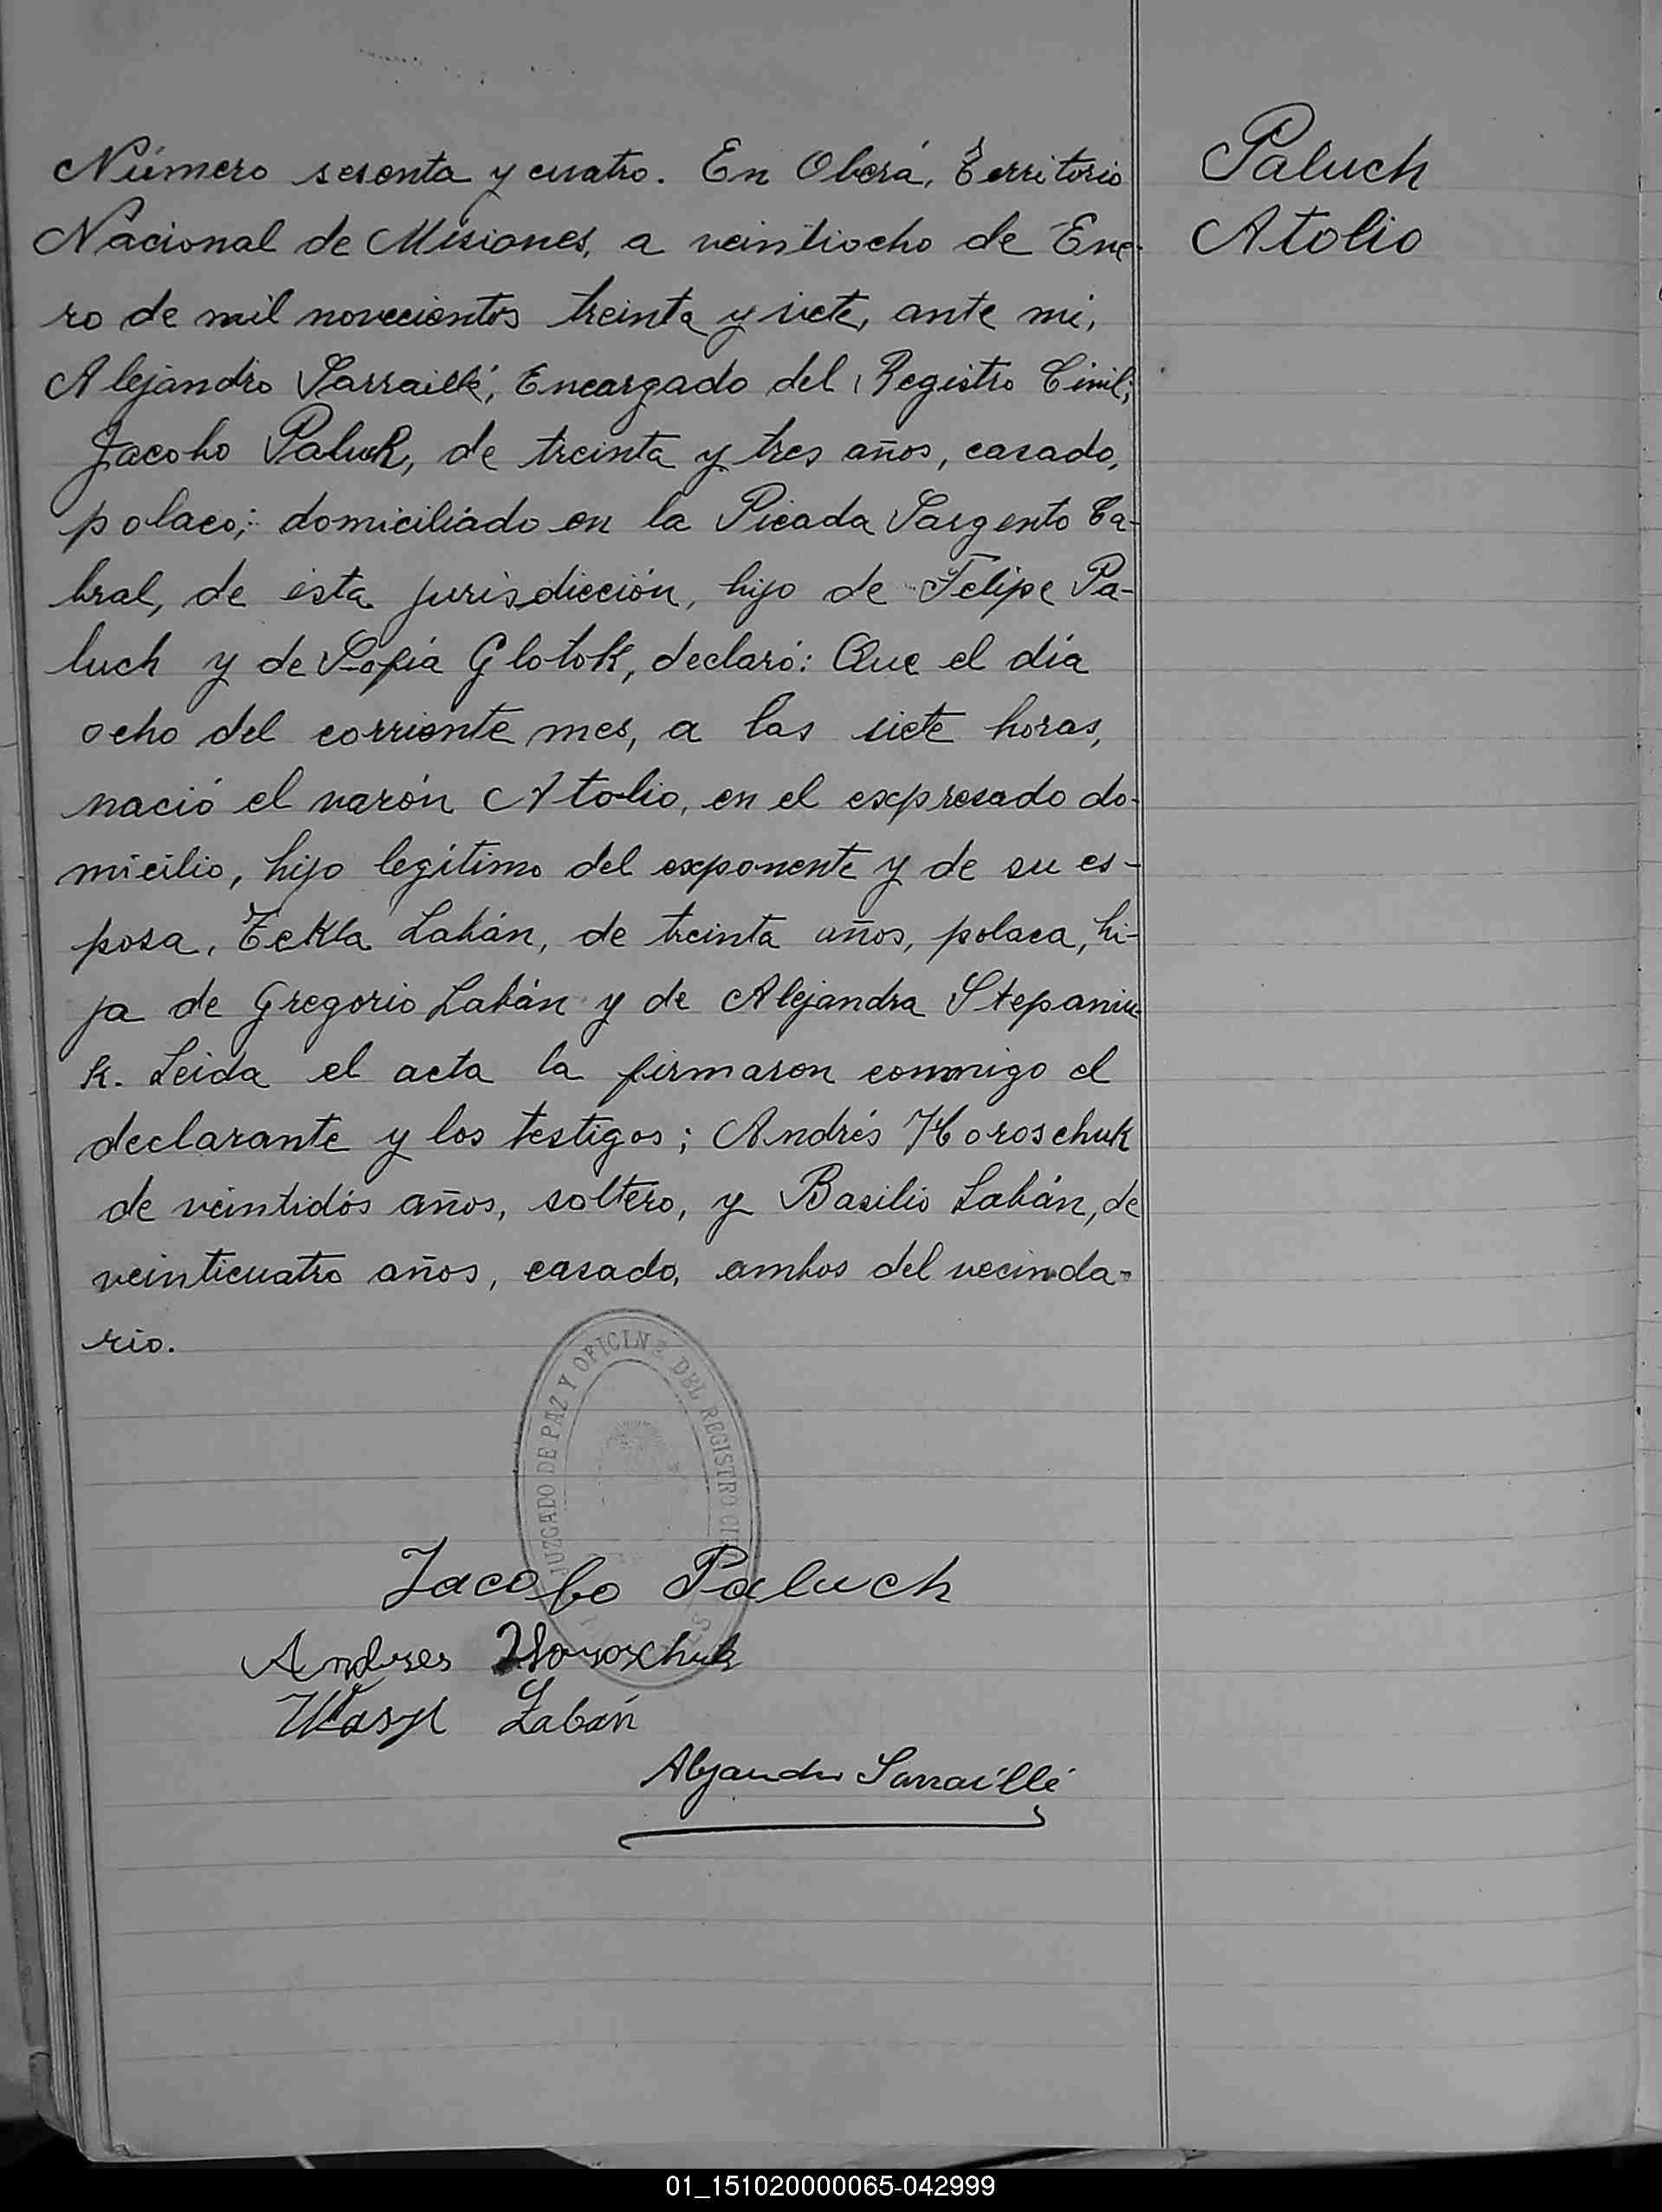 Número sesenta y cuatro. En Oberá, Territorio
Nacional de Misiones, a veintiocho de Ene-
ro de mil novecientos treinta y siete, ante mi,
Alejandro Sarraillé, Encargado del Registro Civil;
Jacobo Paluch, de treinta y tres años, casado,
polaco; domiciliado en la Picada Sargento Ca-
bral, de ésta jurisdicción, hijo de Felipe Pa-
luch y de Sofía Glotok, declaró: Que el día
ocho del corriente mes, a las siete horas,
nació el varón Atolio, en el expresado do-
micilio, hijo legítimo del exponente y de su es-
posa, Tekla Labán, de treinta años, polaca, hi-
ja de Gregorio Labán y de Alejandra Stepaniu-
k. Leida el acta la firmaron conmigo el
declarante y los testigos; Andrés Horoschuk
de veintidós años, soltero, y Basilio Labán, de
veinticuatro años, casado, ambos del vecinda-
rio.
Paluch
Atolio
JUZGADO DE PAZ Y OFICINA DEL REGISTRO
Jacobo Paluch
Andres Horoschuk
Wasyl Labán
Alejandro Sarraillé
01_151020000065-042999